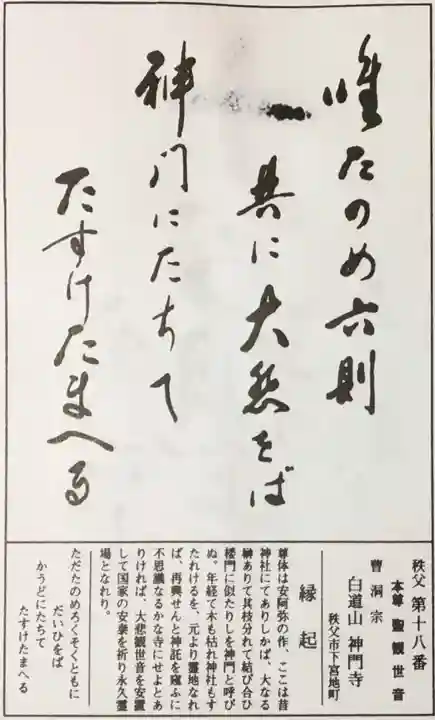 唯たのめ六則
共に大悲をば
神门にたちて
たすけたまへる
秩父 第十八番
本尊 聖観世音
曹洞宗
白道山 神門寺
秩父市下宮地町
縁起
尊体は安阿弥の作、ここは昔
神社にてありしかば、大なる
榊ありて其枝分れて結び合ひ
楼門に似たりしを神門と呼び
ぬ。年経て木も枯れ神社もす
たれけるを、元より霊地なれ
ば、再興せんと神託を窺ふに
不思議なるかな寺にせよとあ
りければ、大悲観世音を安置
して国家の安衆を祈り永久霊
場となれり。
ただたのめろくそくともに
だいひをば
かうどにたちて
たすけたまへる